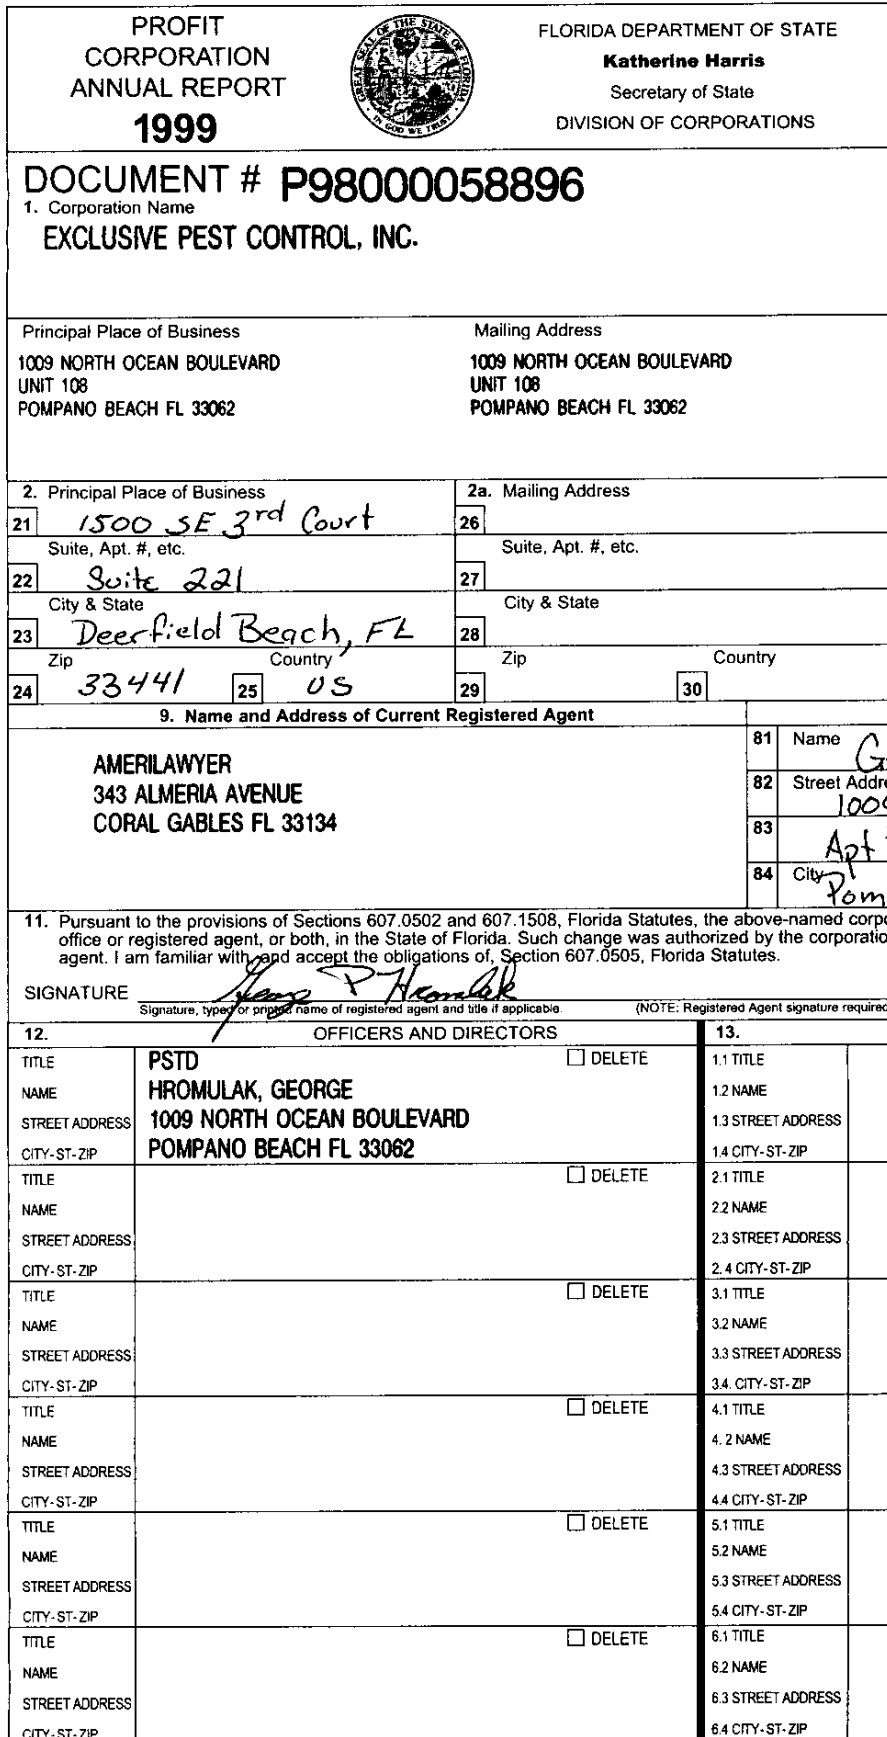 PROFIT
CORPORATION
ANNUAL REPORT
1999
GREAT SEAL OF THE STATE OF FLORIDA
IN GOD WE TRUST
FLORIDA DEPARTMENT OF STATE
Katherine Harris
Secretary of State
DIVISION OF CORPORATIONS
DOCUMENT # P98000058896
1. Corporation Name
EXCLUSIVE PEST CONTROL, INC.
Principal Place of Business
1009 NORTH OCEAN BOULEVARD
UNIT 108
POMPANO BEACH FL 33062
Mailing Address
1009 NORTH OCEAN BOULEVARD
UNIT 108
POMPANO BEACH FL 33062
2. Principal Place of Business
21 1500 SE 3rd Court
Suite, Apt. #, etc.
22 Suite 221
City & State
23 Deerfield Beach, FL
Zip Country
24 33441 25 US
2a. Mailing Address
26
Suite, Apt. #, etc.
27
City & State
28
Zip Country
29 30
9. Name and Address of Current Registered Agent
AMERILAWYER
343 ALMERIA AVENUE
CORAL GABLES FL 33134
81 Name G
82 Street Addre
1009
83
Apt
84 City
Pom
11. Pursuant to the provisions of Sections 607.0502 and 607.1508, Florida Statutes, the above-named corpo
office or registered agent, or both, in the State of Florida. Such change was authorized by the corporatio
agent. I am familiar with, and accept the obligations of, Section 607.0505, Florida Statutes.
SIGNATURE George P Hromulak
Signature, typed or printed name of registered agent and title if applicable. (NOTE: Registered Agent signature required
12. OFFICERS AND DIRECTORS 13.
TITLE PSTD DELETE 1.1 TITLE
NAME HROMULAK, GEORGE 1.2 NAME
STREET ADDRESS 1009 NORTH OCEAN BOULEVARD 1.3 STREET ADDRESS
CITY-ST-ZIP POMPANO BEACH FL 33062 1.4 CITY-ST-ZIP
TITLE DELETE 2.1 TITLE
NAME 2.2 NAME
STREET ADDRESS 2.3 STREET ADDRESS
CITY-ST-ZIP 2.4 CITY-ST-ZIP
TITLE DELETE 3.1 TITLE
NAME 3.2 NAME
STREET ADDRESS 3.3 STREET ADDRESS
CITY-ST-ZIP 3.4. CITY-ST-ZIP
TITLE DELETE 4.1 TITLE
NAME 4.2 NAME
STREET ADDRESS 4.3 STREET ADDRESS
CITY-ST-ZIP 4.4 CITY-ST-ZIP
TITLE DELETE 5.1 TITLE
NAME 5.2 NAME
STREET ADDRESS 5.3 STREET ADDRESS
CITY-ST-ZIP 5.4 CITY-ST-ZIP
TITLE DELETE 6.1 TITLE
NAME 6.2 NAME
STREET ADDRESS 6.3 STREET ADDRESS
CITY-ST-ZIP 6.4 CITY-ST-ZIP